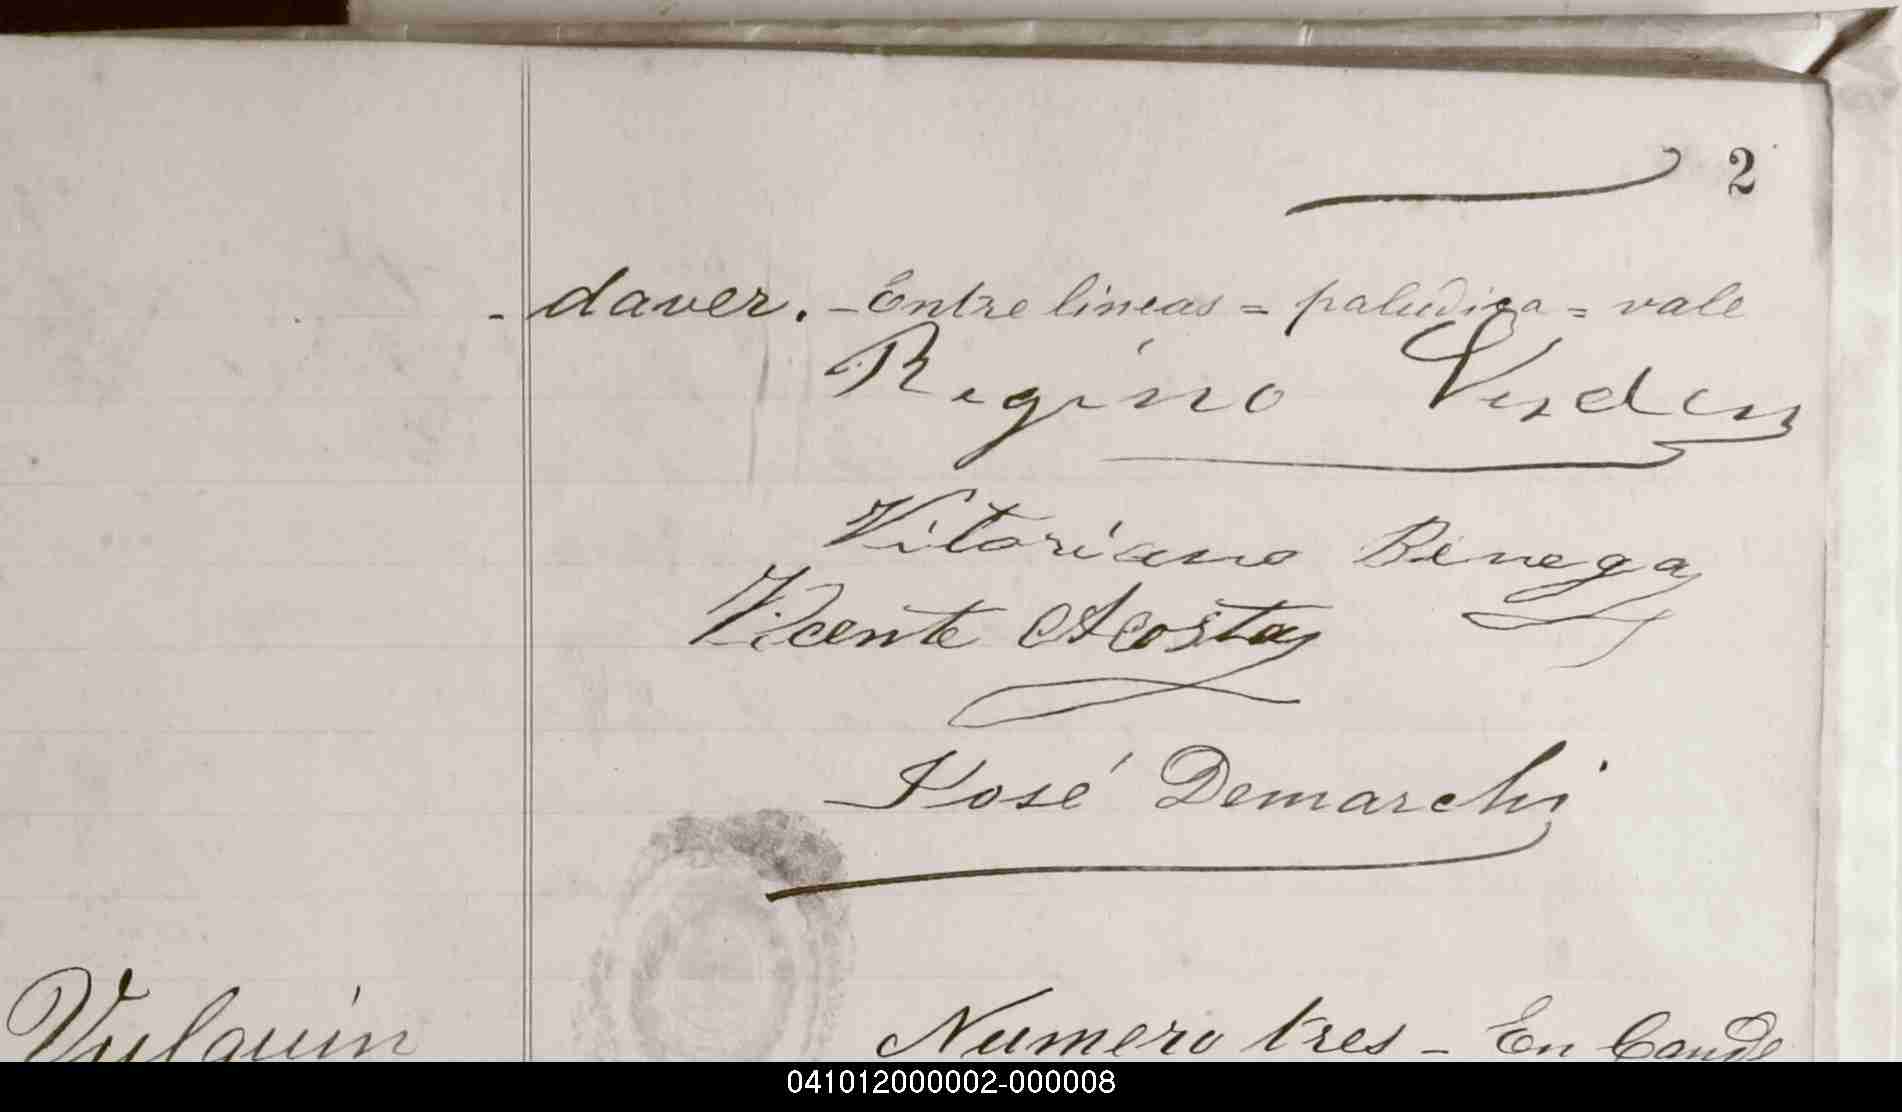 2
- daver. - Entre lineas = paludica = vale
Regino
Vitoriano Benega
Vicente Acosta
José Demarchi
Vulquin
Numero tres - En Cande
041012000002-000008